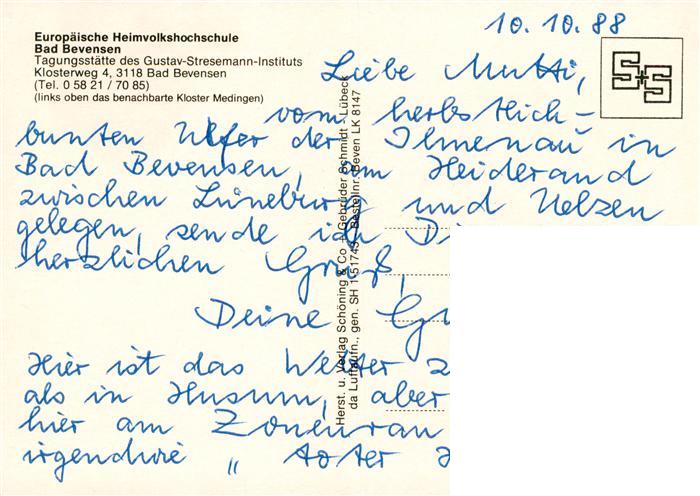 Europäische Heimvolkshochschule
Bad Bevensen
Tagungsstätte des Gustav-Stresemann-Instituts
Klosterweg 4, 3118 Bad Bevensen
(Tel. 0 58 21 / 70 85)
(links oben das benachbarte Kloster Medingen)
10.10.88
S+S
Liebe Mutti,
vom herbstlich-
bunten Ufer der Ilmenau in
Bad Bevensen, am Heiderand
zwischen Lüneburg und Uelzen
gelegen, sende ich
herzlichen Gruß,
Deine
Hier ist das Wetter
als in Husum, aber
hier am
irgendwie „ toter
Herst. u. Verlag Schöning & Co + Gebrüder Schmidt - Lübeck
da Luftaufn., gen. SH 1 51743 Bestellnr. Beven LK 8147